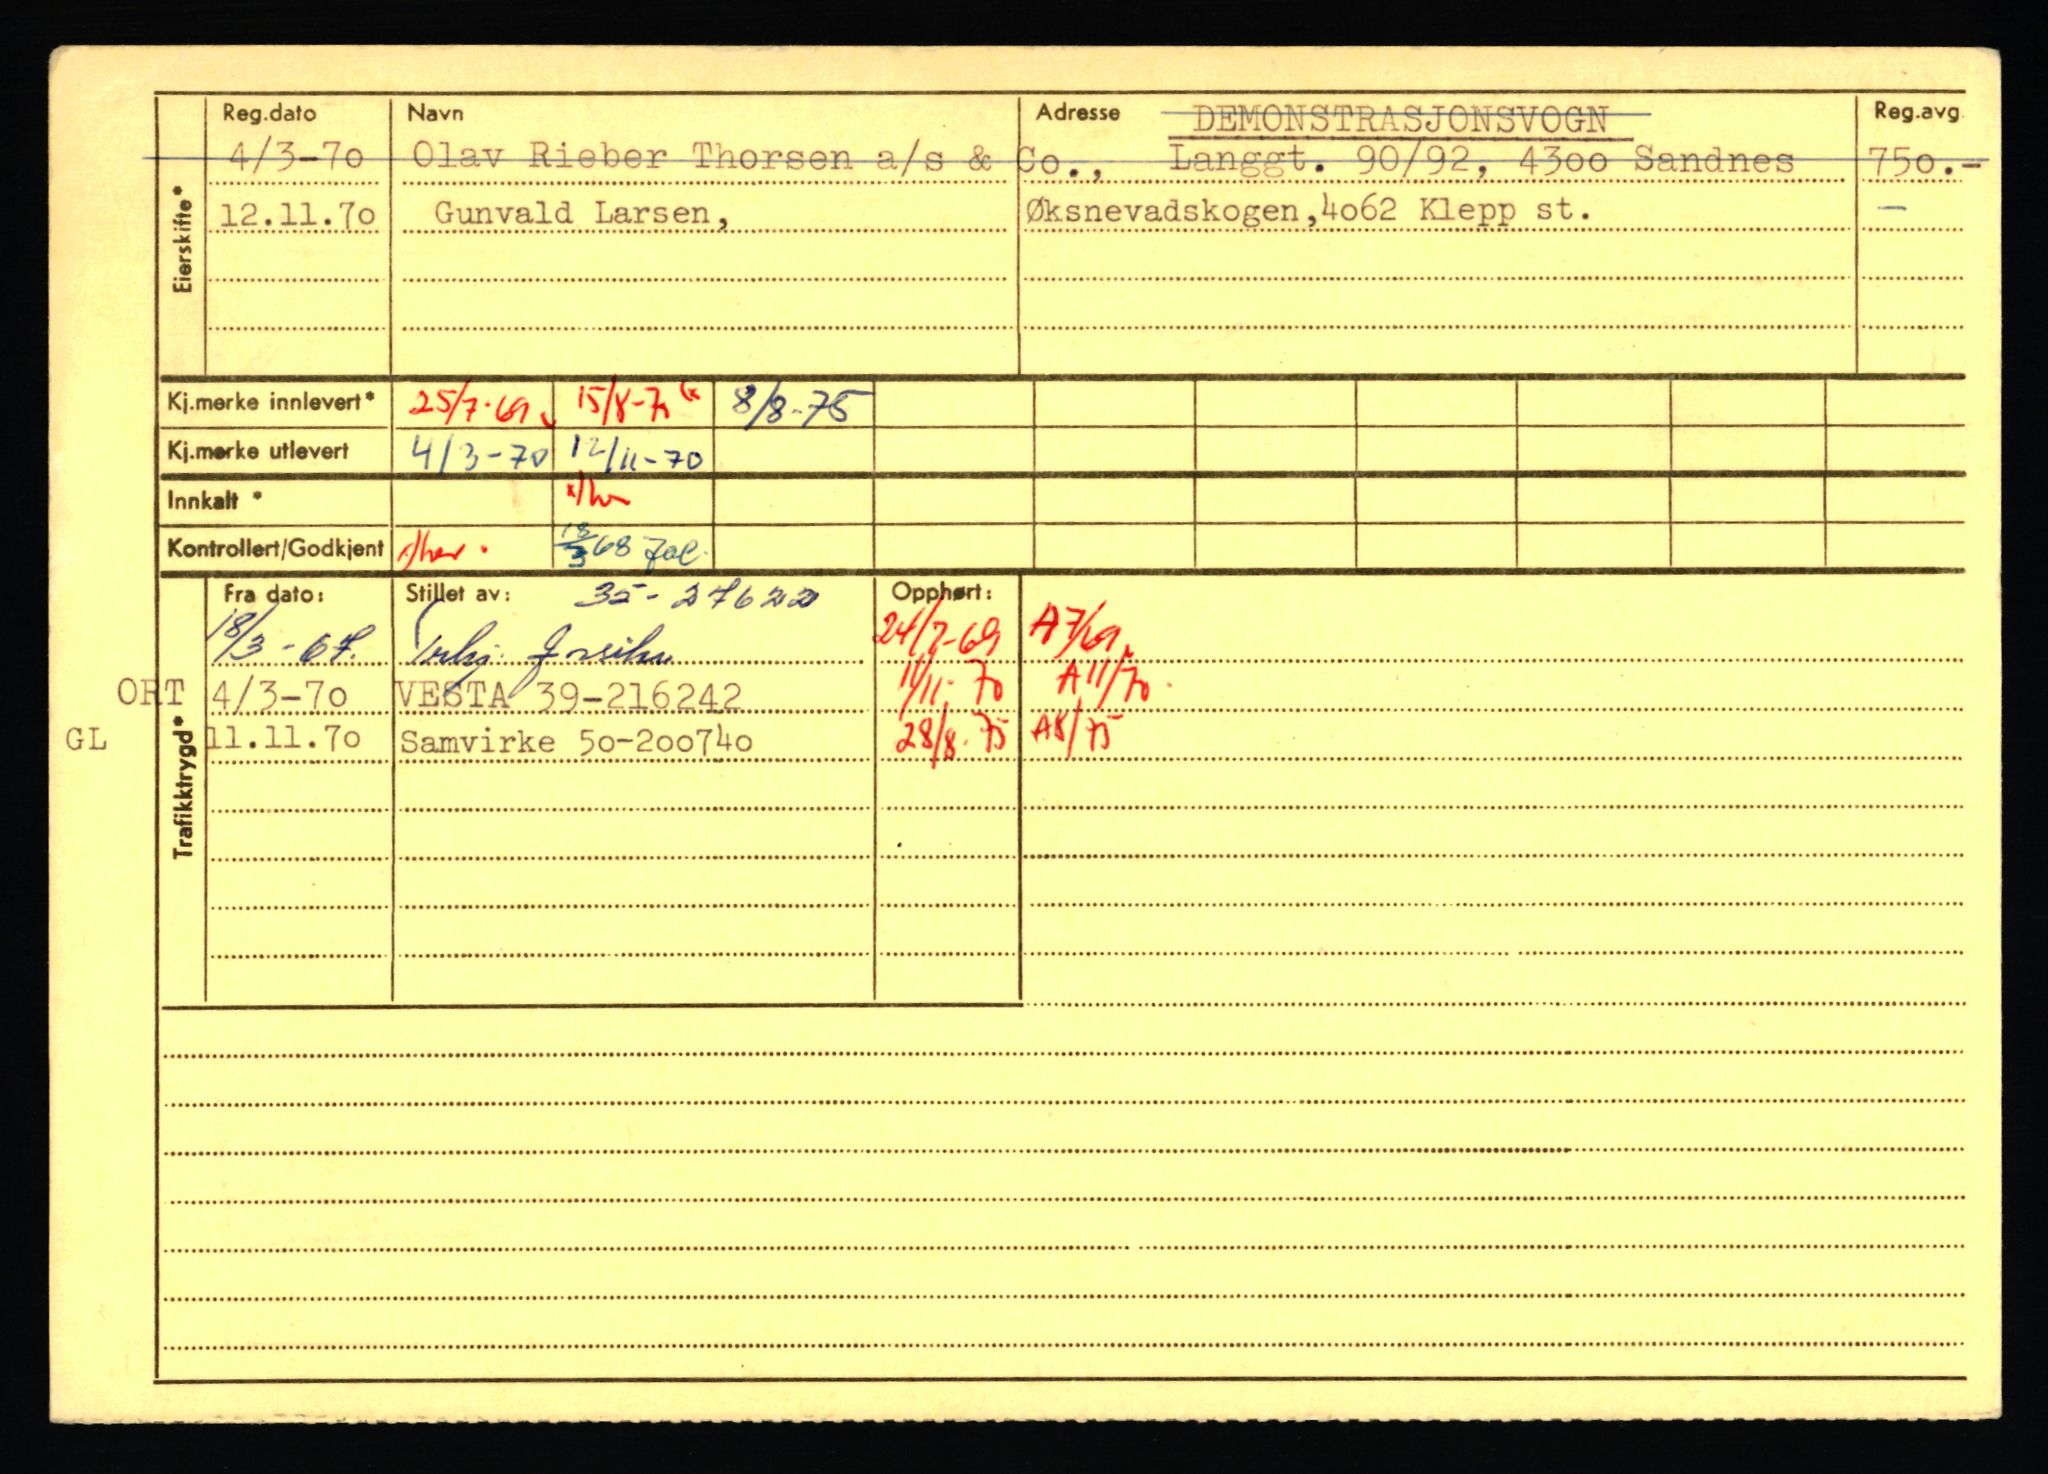 Reg.dato Navn Adresse DEMONSTRASJONSVOGN Reg.avg.
4/3-70 Olav Rieber Thorsen a/s & Co., Langgt. 90/92, 4300 Sandnes 750.-
12.11.70 Gunvald Larsen, Øksnevadskogen,4062 Klepp st. —
Eierskifte*
Kj.merke innlevert* 25/7-69 15/8-70 8/8-75
Kj.merke utlevert 4/3-70 12/11-70
Innkalt *
Kontrollert/Godkjent 68
Fra dato: Stillet av: 35-27622 Opphørt:
18/3-67. 24/7-69 A7/69
ORT 4/3-70 VESTA 39-216242 11/11-70 A11/70.
GL 11.11.70 Samvirke 50-200740 28/8-75 A8/75
Trafikktrygd*